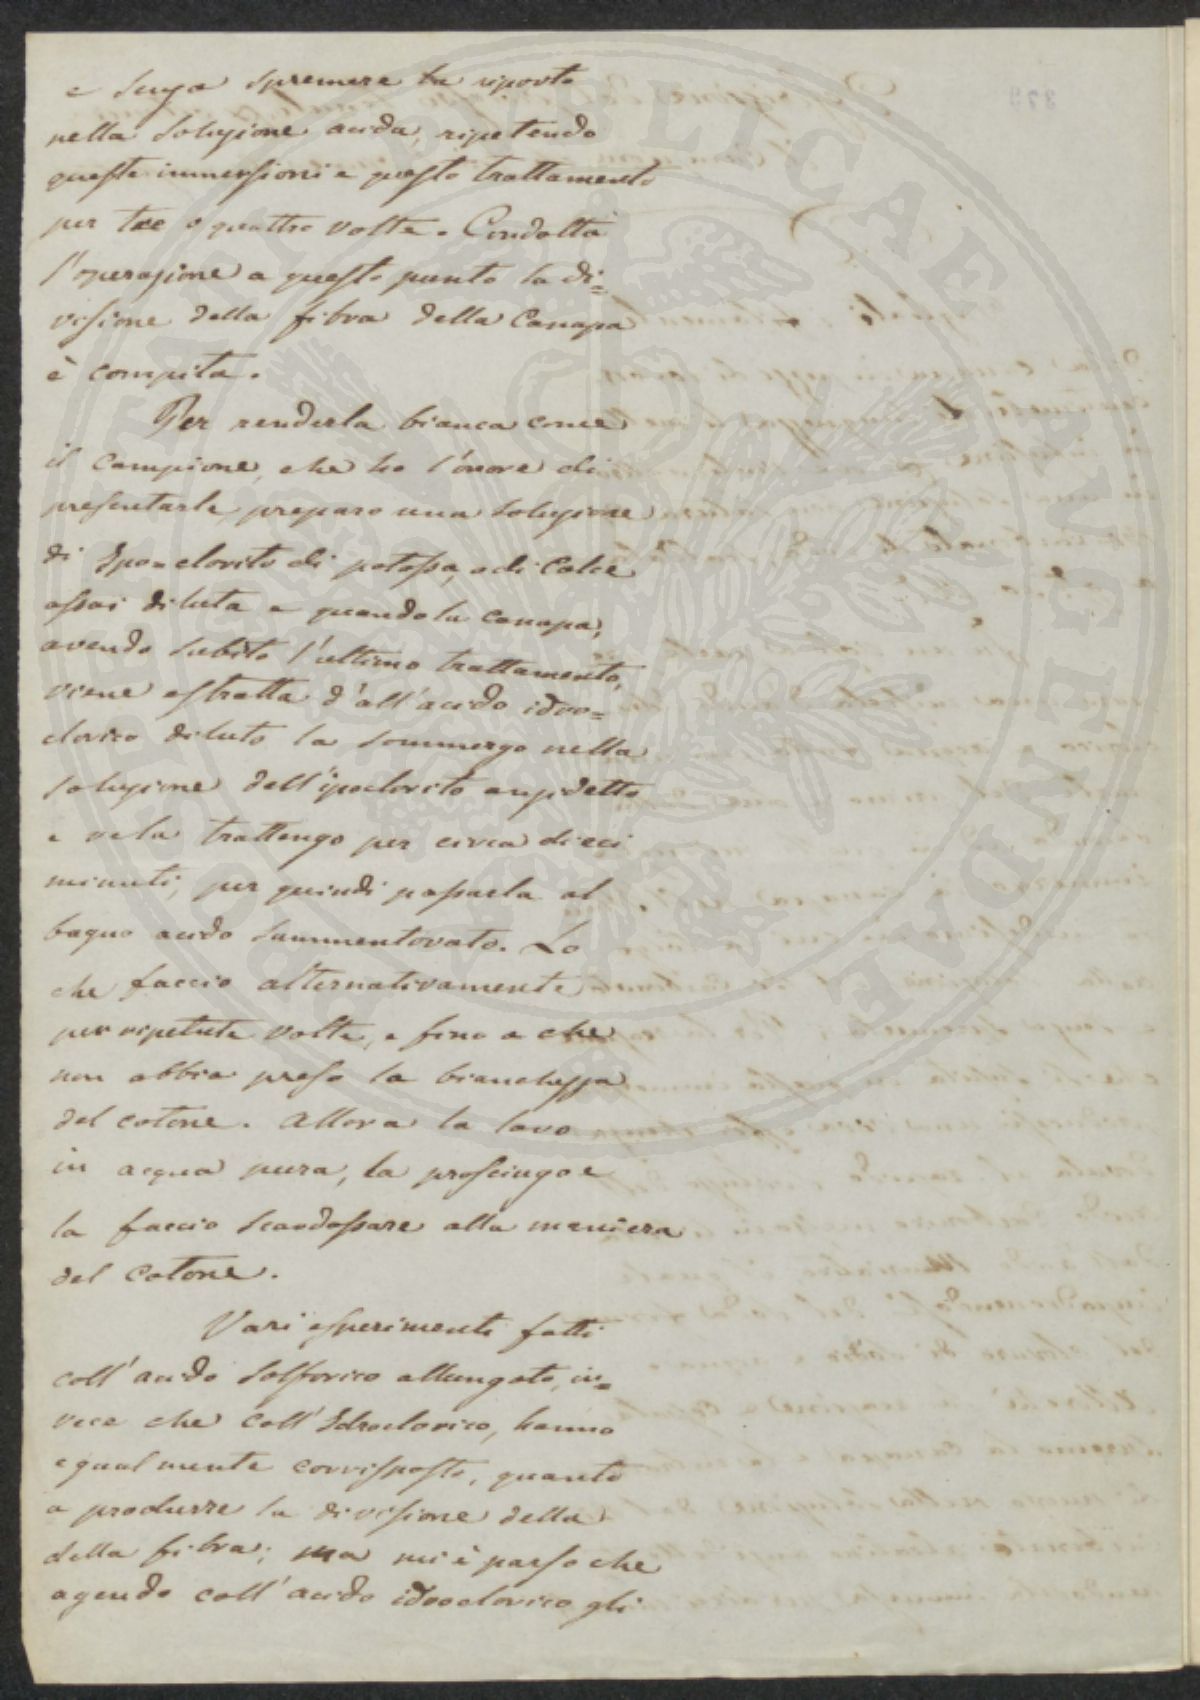 e senza spremere la riporto
nella soluzione acida, ripetendo
queste immersioni e questo trattamento
per tre o quattro volte. Condotta
l'operazione a questo punto la di=
visione della fibra della Canapa
è compita.
Per renderla bianca come
il campione, che ho l'onore di
presentarle, preparo una soluzione
di Ipo=clorito di potassa, o di Calce
assai diluta e quando la canapa,
avendo subìto l'ultimo trattamento,
viene estratta d'all'acido idro=
clorico diluto la sommergo nella
soluzione dell'ipoclorito anzidetto
e ve la trattengo per circa dieci
minuti, per quindi passarla al
bagno acido summentovato. Lo
che faccio alternativamente
per ripetute volte, e fino a che
non abbia preso la bianchezza
del cotone. Allora la lavo
in acqua pura, la prosciugo e
la faccio scardassare alla maniera
del cotone.
Vari esperimenti fatti
coll'acido Solforico allungato, in=
vece che coll'Idroclorico, hanno
egualmente corrisposto, quanto
a produrre la divisione della
della fibra; ma mi è parso che
agendo coll'acido idroclorico gli
379
RES PUBLICAE AUGENDAE